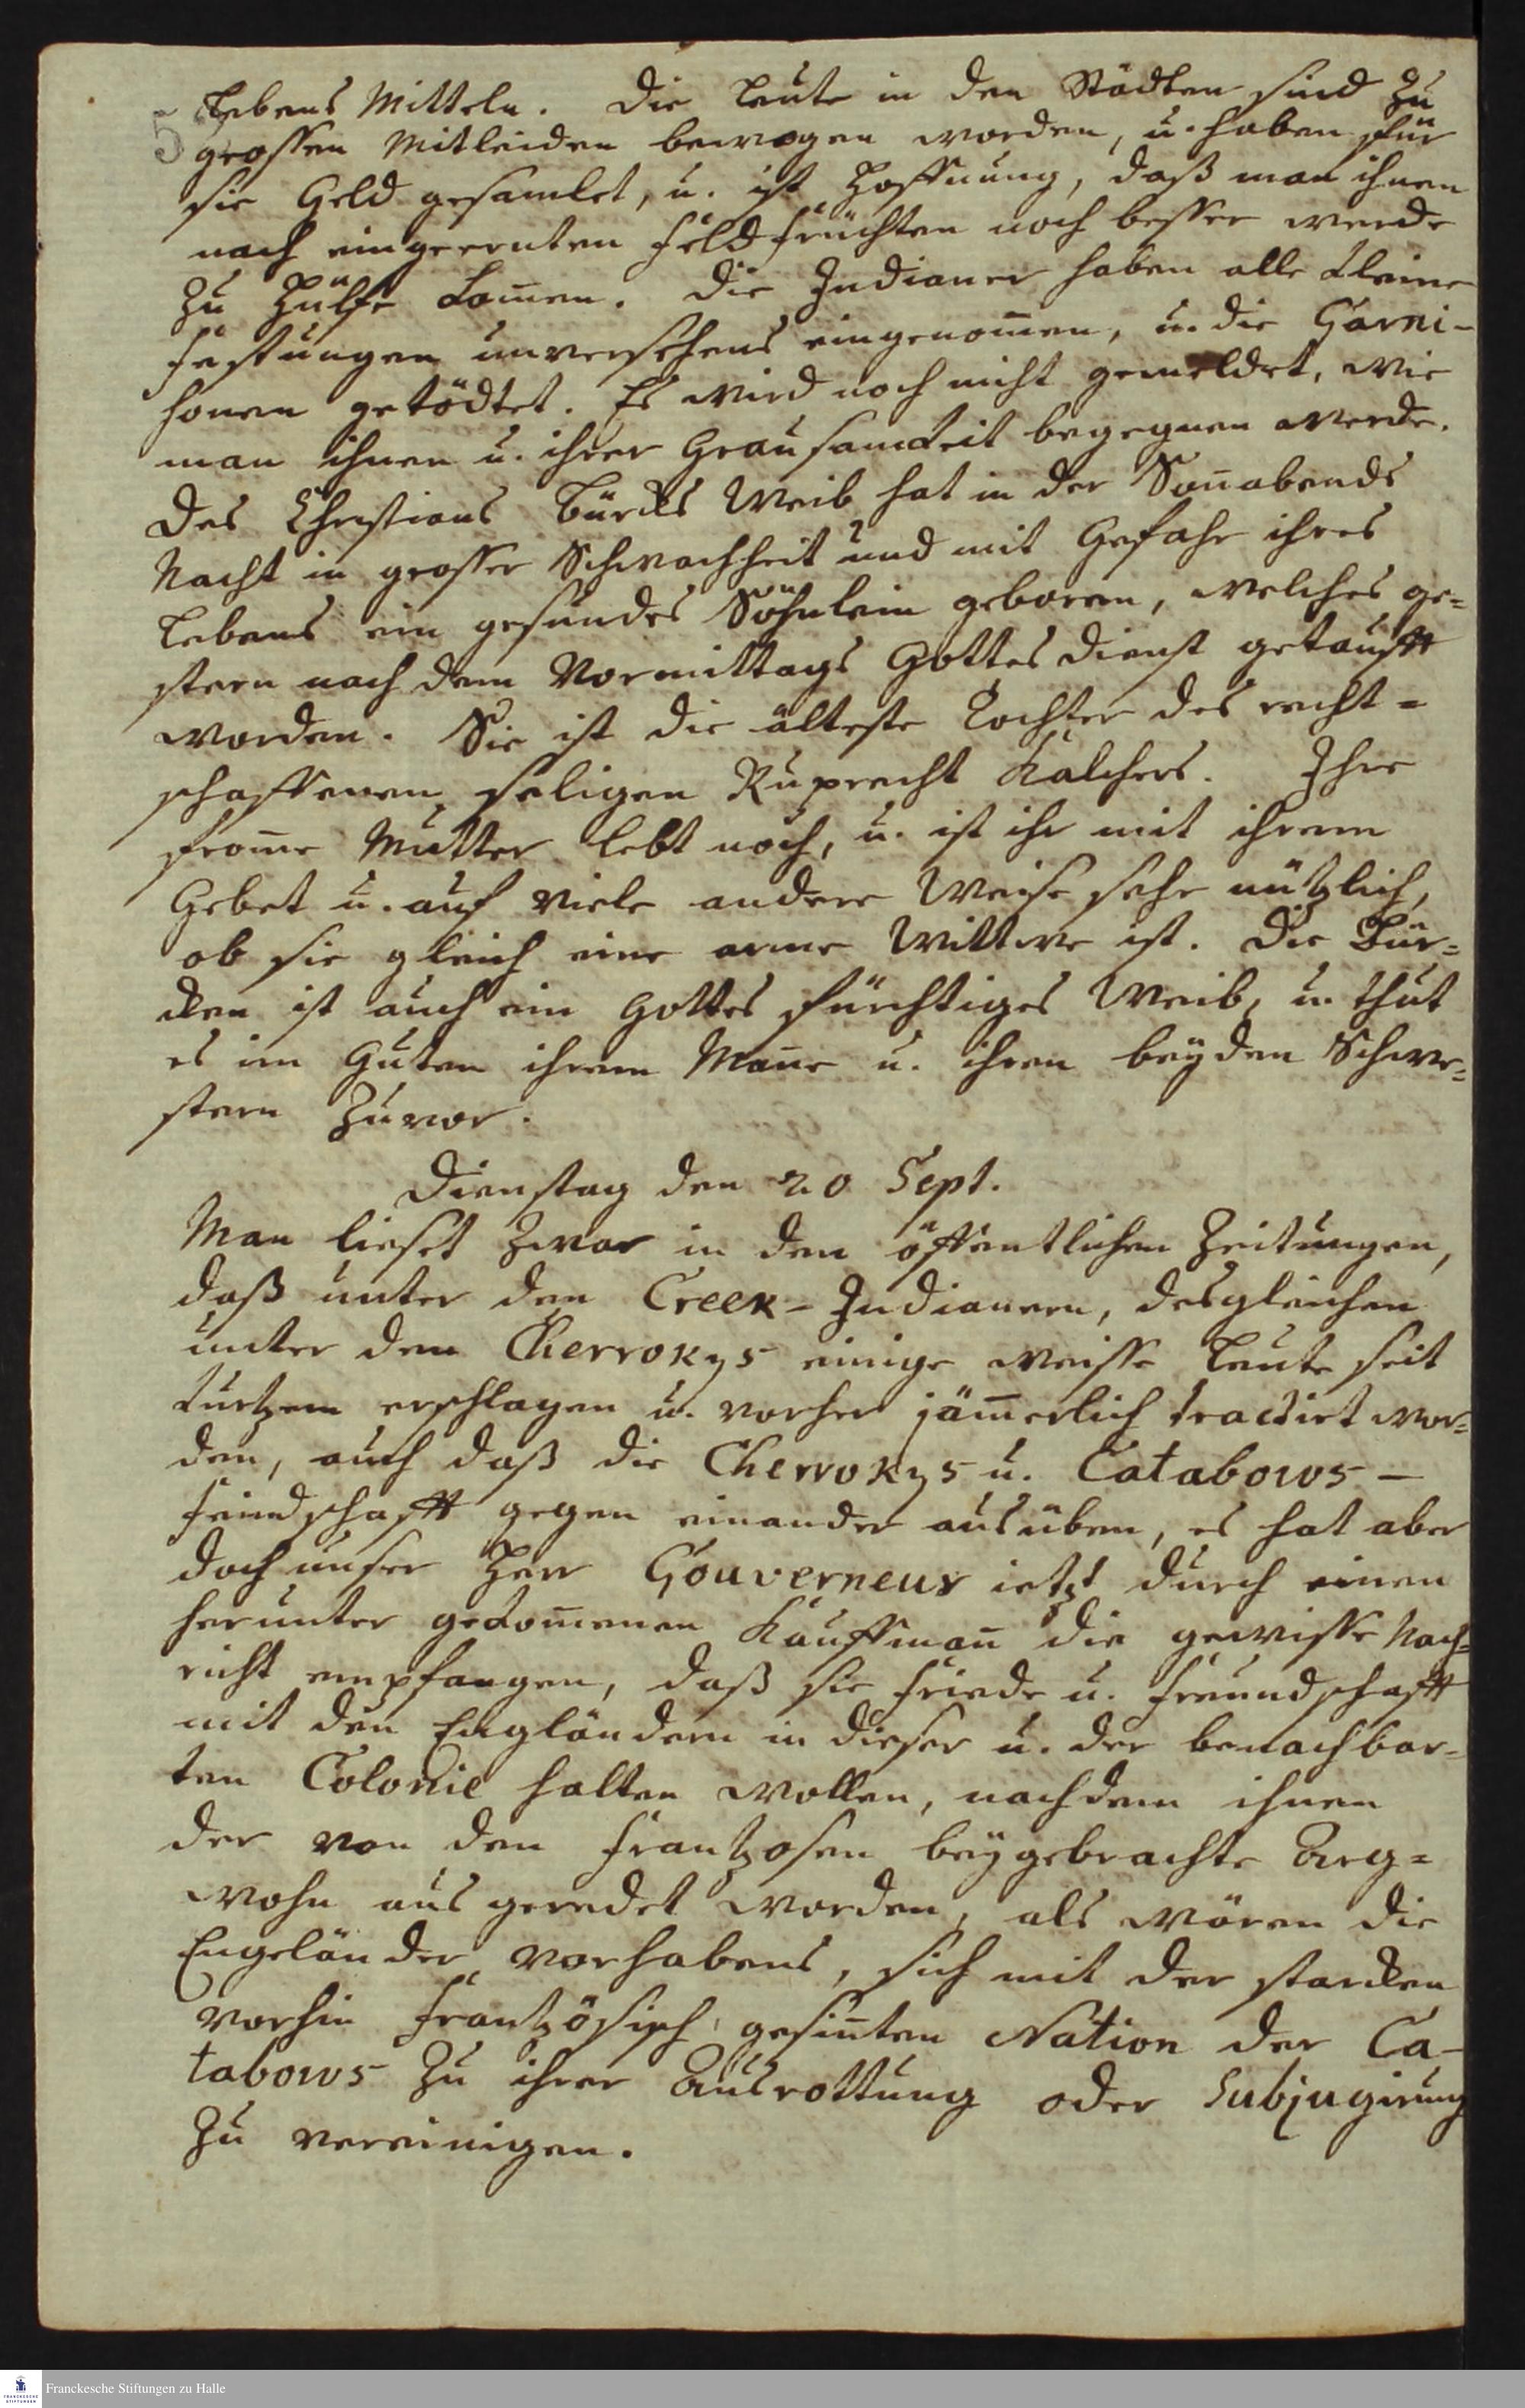 5
Lebens Mitteln. Die Leute in den Städten sind zu
grossen Mitleiden bewogen worden, u. haben für
sie Geld gesamlet, u. ist Hoffnung, daß man ihnen
nach eingeernten Feldfrüchten noch besser werde
zu Hülfe kom̄en. Die Indianer haben alle kleine
Festungen unversehens eingenom̄en, u. die Garni-
sonen getödtet. Es wird noch nicht gemeldet, wie
man ihnen u. ihrer Grausamkeit begegnen werde.
Des Christians Bürcks Weib hat in der Son̄abends
Nacht in grosser Schwachheit und mit Gefahr ihres
Lebens ein gesundes Söhnlein geboren, welches ge=
stern nach dem Vormittags Gottesdienst getaufft
worden. Sie ist die älteste Tochter des recht=
schaffenen seligen Ruprecht Kalchers. Ihre
from̄e Mutter lebt noch, u. ist ihr mit ihrem
Gebet u. auf viele andere Weise sehr nützlich,
ob sie gleich eine arme Wittwe ist. Die Bür=
cken ist auch ein Gottesfürchtiges Weib, u. thut
es im Guten ihrem Man̄e u. ihren beyden Schwe=
stern zuvor.
Dienstag den 20 Sept.
Man lieset zwar in den öffentlichen Zeitungen,
daß unter den Creek-Indianern, desgleichen
unter den Cherrokys einige weisse Leute seit
kurtzem erschlagen u. vorher jäm̄erlich tractirt wor=
den, auch daß die Cherrokys u. Catabows -
Feindschafft gegen einander ausüben, es hat aber
doch unser Herr Gouverneur ietzt durch einen
herunter gekom̄enen Kauffman̄ die gewisse Nach=
richt empfangen, daß sie Friede u. Freundschafft
mit den Engländern in dieser u. der benachbar-
ten Colonie halten wollen, nachdem ihnen
der von den Frantzosen beygebrachte Arg=
wohn ausgeredet worden, als wären die
Engeländer vorhabens, sich mit der starcken
vorhin Frantzösisch gesin̄ten Nation der Ca-
tabows zu ihrer Ausrottung oder Subjugirung
zu vereinigen.
Franckesche Stiftungen zu Halle